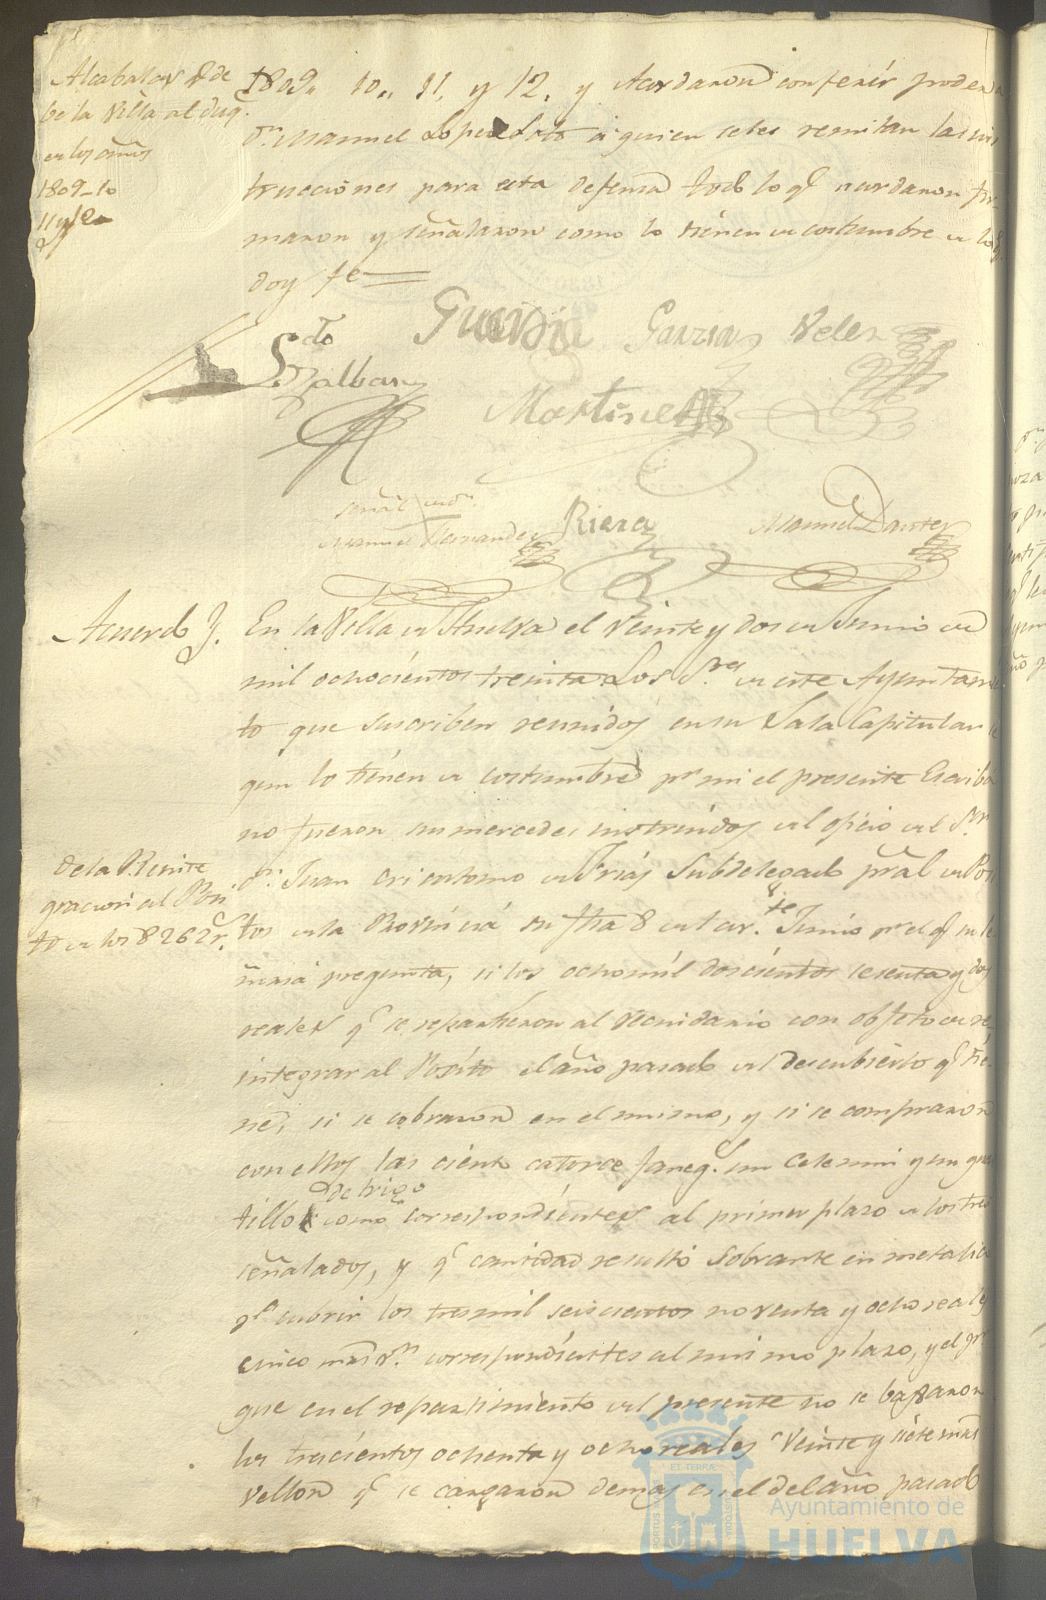 Alcabalas q.e de
be la Villa al duq.
en los años
1809-10
11 y 12
1809,, 10,, 11, y 12, y Acordaron conferir poder a
D.n Manuel Lopez á quien se les remitan las ins
trucciones para esta defensa todo lo q.e acordaron fir-
maron y señalaron como lo tienen de costumbre de todo
doy fe
Guardia Garzia Velez
Ldo
Villalba
Martinez
señal de
Manuel Hernandez Riera Manuel Dauter
Acuerdo J.
En la Villa de Huelva el veinte y dos de Junio de
mil ochocientos treinta Los S.res de este Ayuntamien
to que suscriben reunidos en su Sala Capitular se
gun lo tienen de costumbre p.r mi el presente Escriba
no fueron sus mercedes instruidos del oficio del S.or
De la Reinte
gracion al Posi
to de los 8262 r.s
D.n Juan Crisostomo de Frias Subdelegado pral de Posi
tos de la Provincia su fha 8 del cor.te Junio p.r el q.e su Se
ñoria pregunta, si los ocho mil doscientos sesenta y dos
reales q.e se repartieron al vecindario con objeto de re
integrar al Posito el año pasado del descubierto q.e tie-
ne, si se cobraron en el mismo, y si se compraron
con ellos las ciento catorce faneg.s un celemin y un quar
de trigo
tillo como correspondientes al primer plazo de los tres
señalados, y q.e cantidad resultó sobrante en metalico
p.a cubrir los tres mil seiscientos noventa y ocho reales
cinco mrs v.n correspondientes al mismo plazo, y el p.r
que en el repartimiento del presente no se bajaron
los trescientos ochenta y ocho reales veinte y siete mrs
vellon q.e se cargaron demas en el del año pasado
Ayuntamiento de
HUELVA